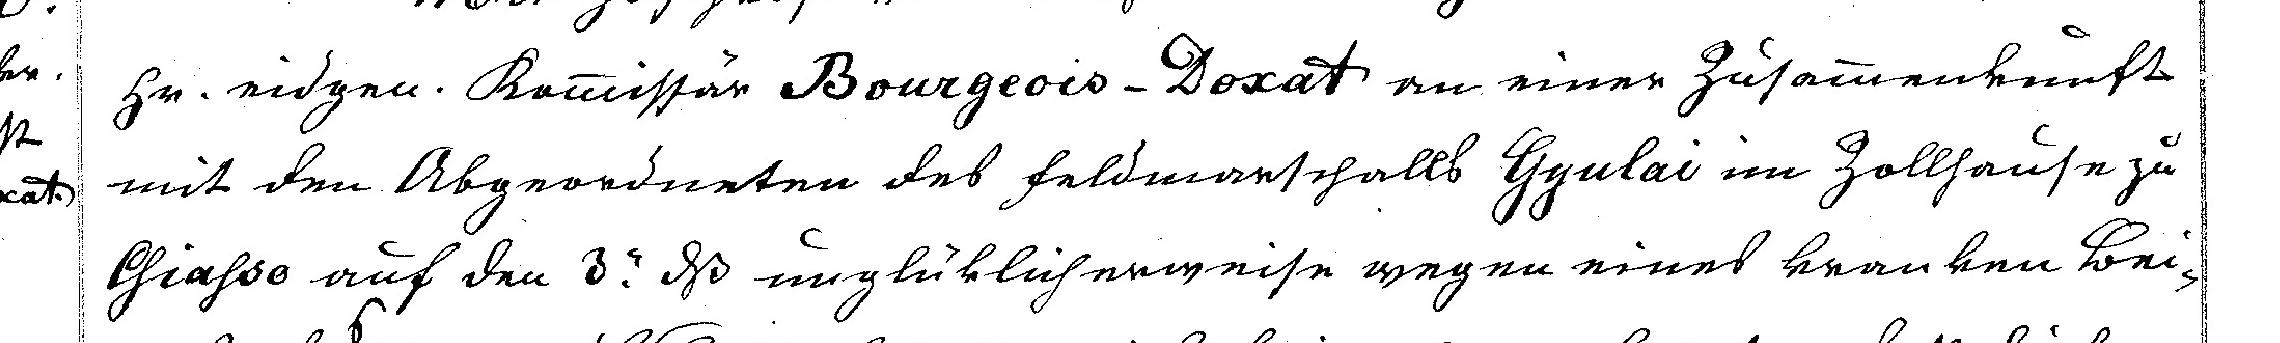 Hr. eidgen. Kom̅issär Bourgeois-Doxat an einer Zusam̅enkunft
mit den Abgeordneten des Feldmarschalls Gyulai im Zollhause zu
Chiasso auf den 3. dß unglüklicherweise wegen eines kranken Bei-